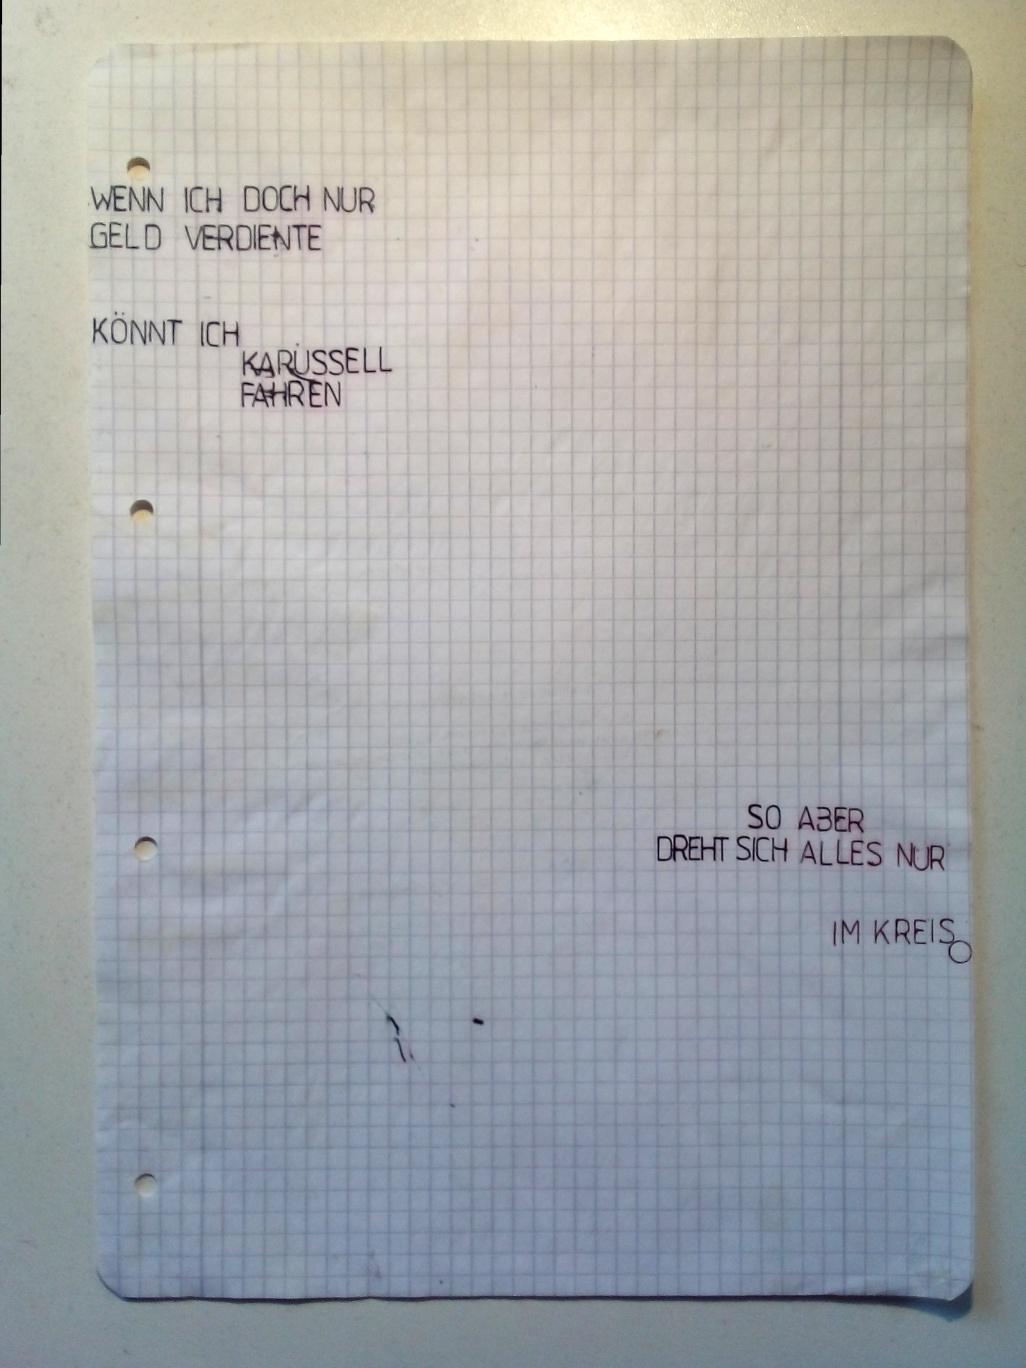 WENN ICH DOCH NUR
GELD VERDIENTE
KÖNNT ICH
KARUSSELL
FAHREN
SO ABER
DREHT SICH ALLES NUR
IM KREIS